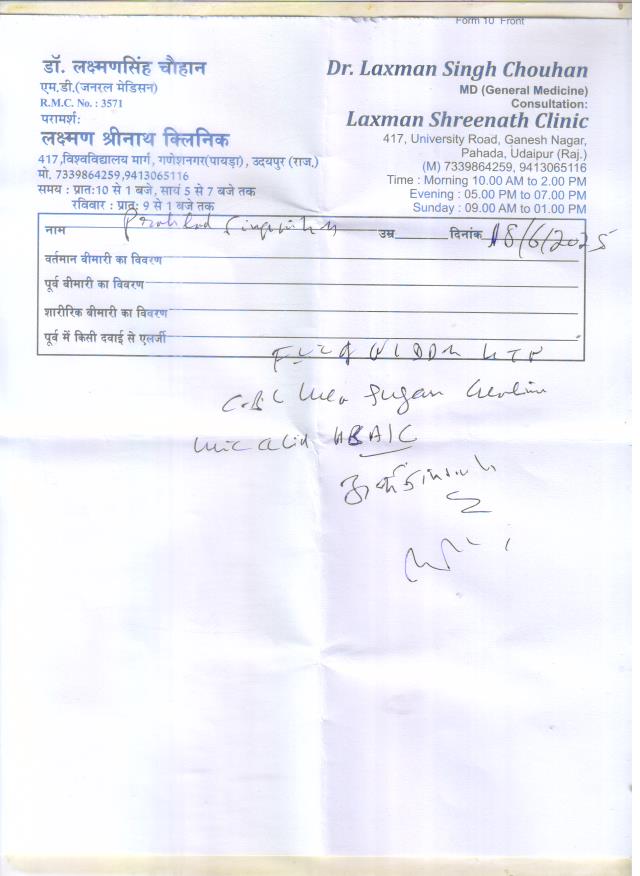 Form 10 Front
डॉ. लक्ष्मणसिंह चौहान
एम.डी.(जनरल मेडिसन)
R.M.C. No. : 3571
परामर्श:
लक्ष्मण श्रीनाथ क्लिनिक
417,विश्वविद्यालय मार्ग, गणेशनगर(पायड़ा), उदयपुर (राज.)
मो. 7339864259,9413065116
समय : प्रात:10 से 1 बजे, सायं 5 से 7 बजे तक
रविवार : प्रात: 9 से 1 बजे तक
Dr. Laxman Singh Chouhan
MD (General Medicine)
Consultation:
Laxman Shreenath Clinic
417, University Road, Ganesh Nagar,
Pahada, Udaipur (Raj.)
(M) 7339864259, 9413065116
Time : Morning 10.00 AM to 2.00 PM
Evening : 05.00 PM to 07.00 PM
Sunday : 09.00 AM to 01.00 PM
नाम उम्र दिनांक 18/6/2025
वर्तमान बीमारी का विवरण
पूर्व बीमारी का विवरण
शारीरिक बीमारी का विवरण
पूर्व में किसी दवाई से एलर्जी
CBC Sugar
uric acid HBA1C